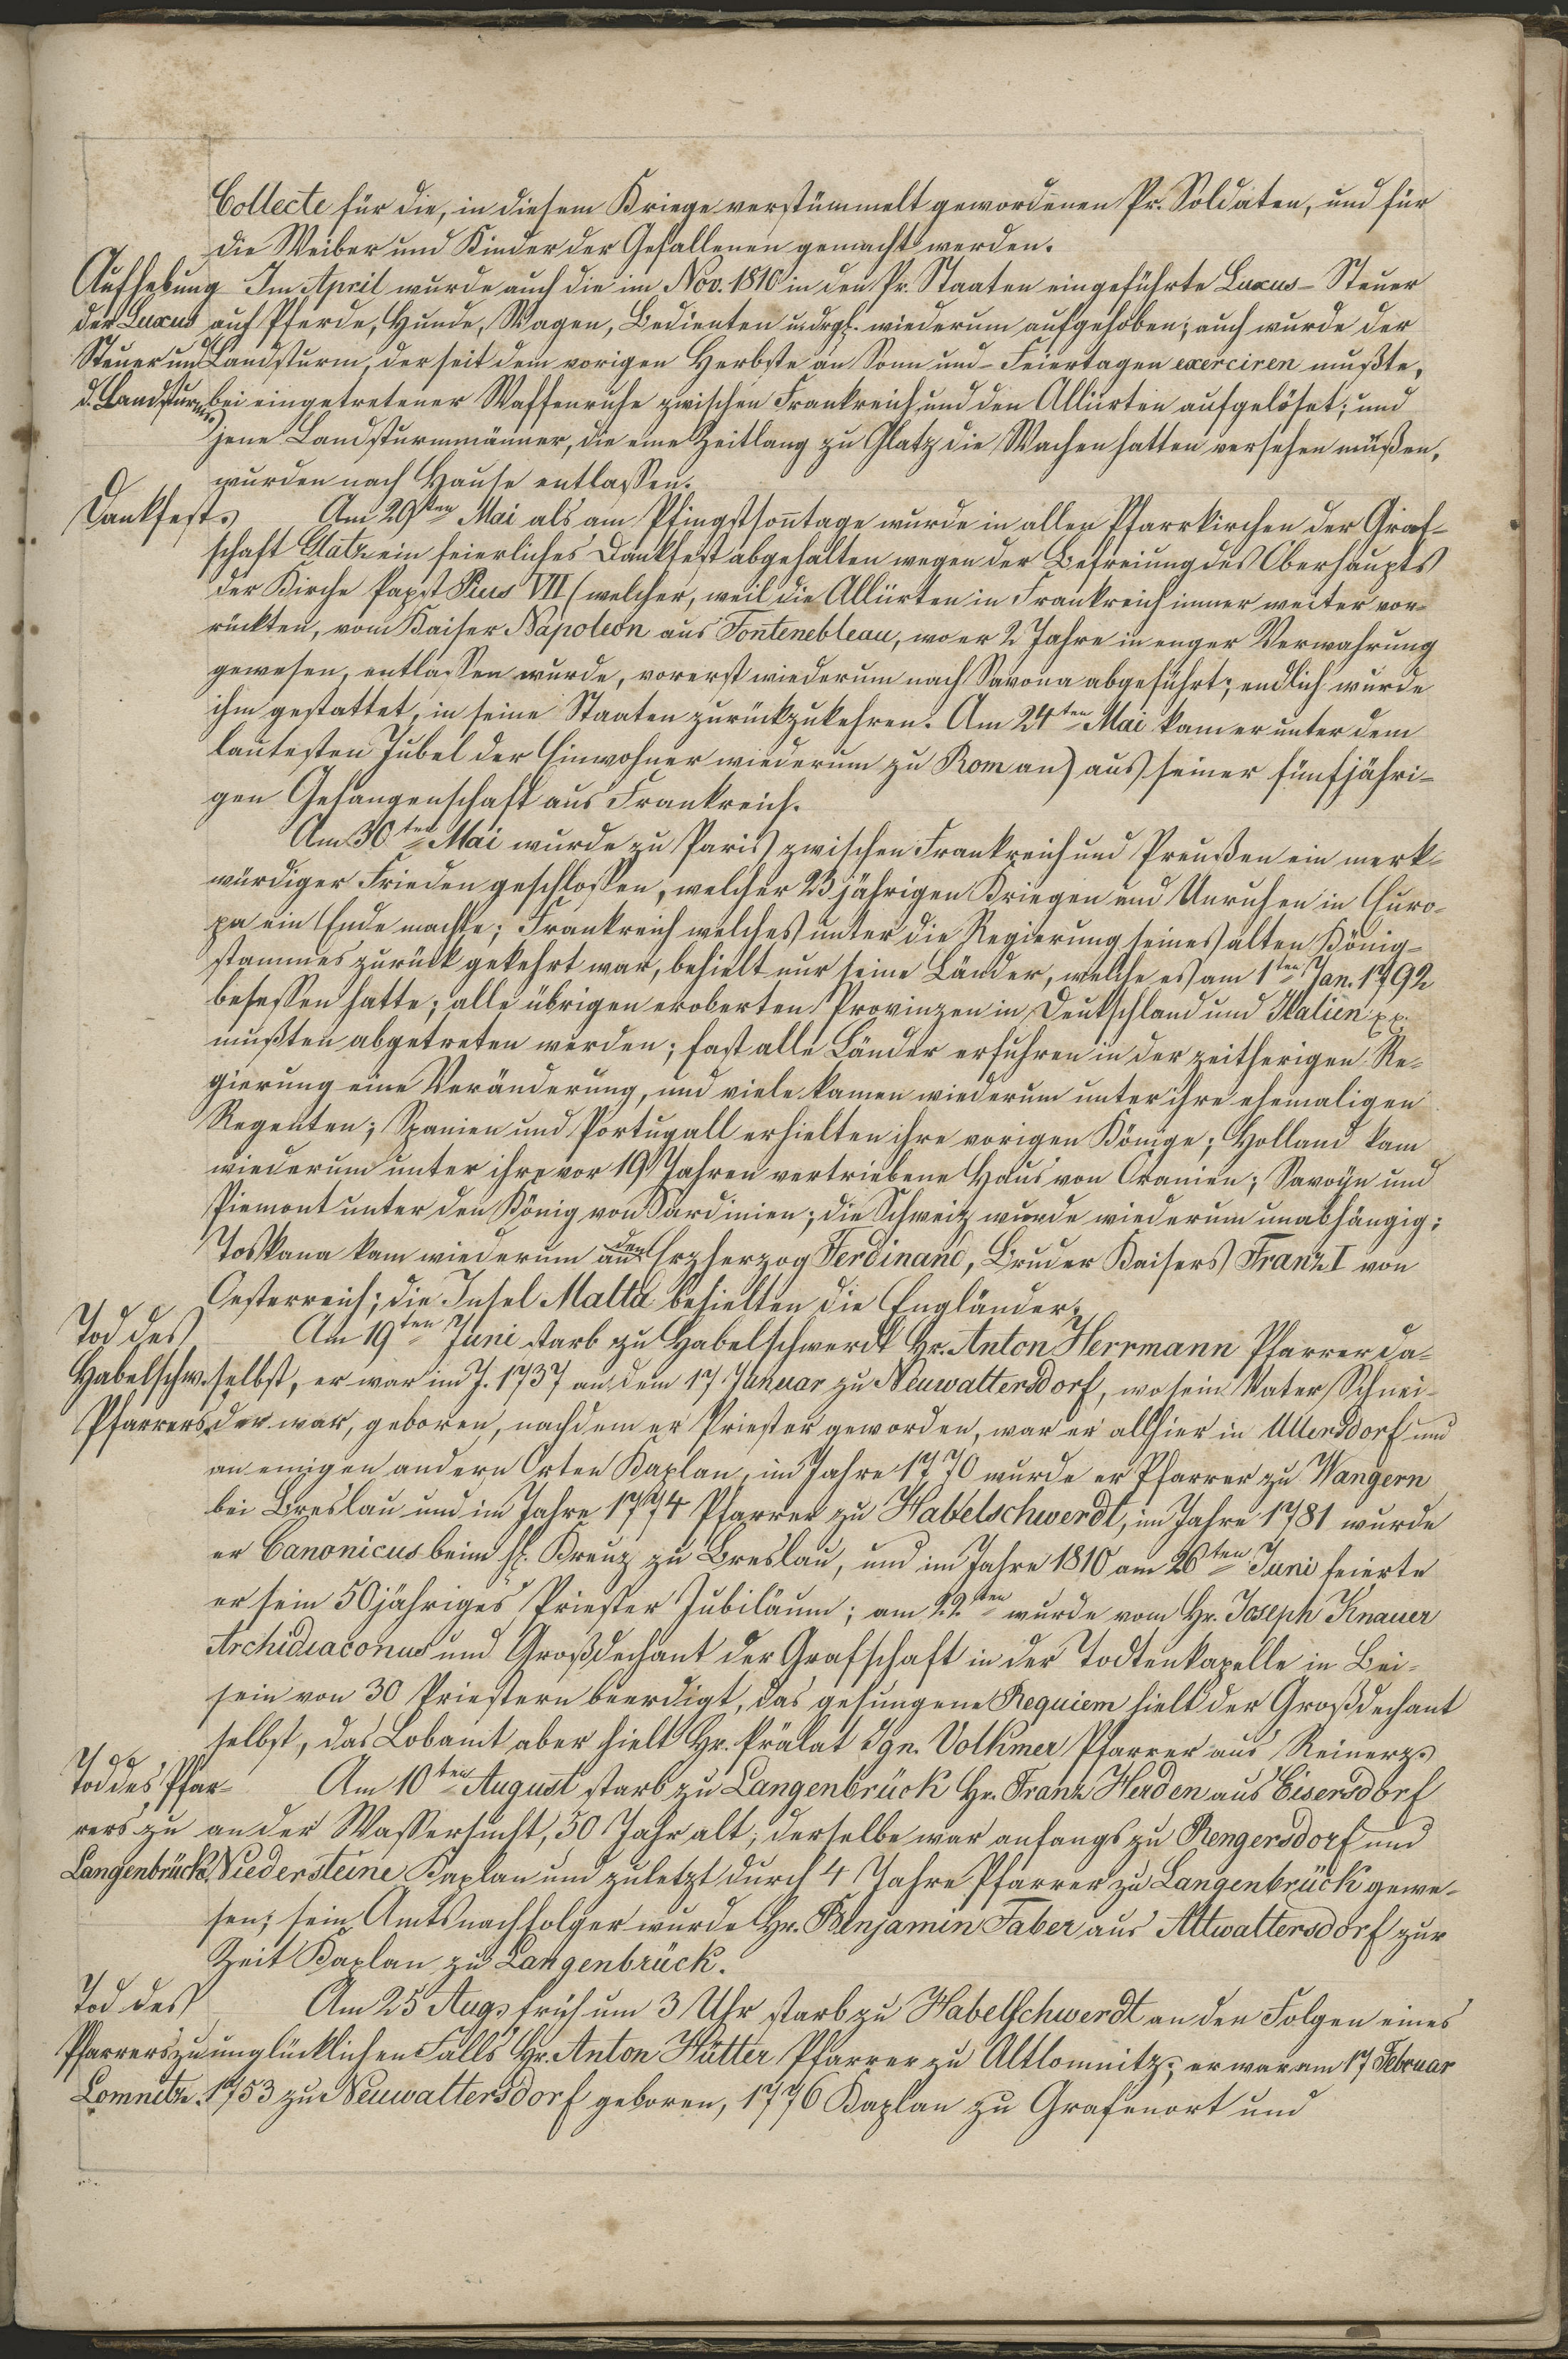 Collecte für die, in diesem Kriege verstümmelt gewordenen Pr. Soldaten, und für
die Weiber und Kinder der Gefallenen gemacht werden.
Aufhebung
der Luxus
Steuer und
d. Landsturms
Im April wurde auch die im Nov. 1810 in den Pr. Staaten eingeführte Luxus-Steuer
auf Pferde, Hunde, Wagen, Bedienten u. drgl. wiederum aufgehoben; auch wurde der
Landsturm, der seit dem vorigen Herbste an Sonn und-Feiertagen exerciren mußte,
bei eingetretener Waffenruhe zwischen Frankreich und den Alliirten aufgelöset; und
jene Landsturmmänner, die eine Zeitlang zu Glatz die Wachen hatten versehen müßen,
wurden nach Hause entlaßen.
Dankfest.
Am 29ten Mai als am Pfingstsontage wurde in allen Pfarrkirchen der Graf-
schaft Glatz ein feierliches Dankfest abgehalten wegen der Befreiung des Oberhaupts
der Kirche Papst Pius VII (welcher, weil die Alliirten in Frankreich immer weiter vor-
rückten, vom Kaiser Napoleon aus Fontenebleau, wo er 2 Jahre in enger Verwahrung
gewesen, entlaßen wurde, vorerst wiederum nach Savona abgeführt; endlich wurde
ihm gestattet, in seine Staaten zurückzukehren. Am 24ten Mai kam er unter dem
lautesten Jubel der Einwohner wiederum zu Rom an) aus seiner fünfjähri-
gen Gefangenschaft aus Frankreich.
Am 30ten Mai wurde zu Paris zwischen Frankreich und Preußen ein merk-
würdiger Frieden geschloßen, welcher 23jährigen Kriegen und Unruhen in Euro-
pa ein Ende machte; Frankreich welches unter die Regierung seines alten König-
stammes zurück gekehrt war, behielt nur seine Länder, welche es am 1ten Jan. 1792
beseßen hatte; alle übrigen eroberten Provinzen in Deutschland und Italien pp.
mußten abgetreten werden; fast alle Länder erfuhren in der zeitherigen Re-
gierung eine Veränderung, und viele kamen wiederum unter ihre ehemaligen
Regenten; Spanien und Portugall erhielten ihre vorigen Könige; Holland kam
wiederum unter ihre vor 19 Jahren vertriebene Haus von Oranien; Savoÿn und
Piemont unter den König von Sardinien; die Schweitz wurde wiederum unabhängig;
Toskana kam wiederum an den Erzherzog Ferdinand, Bruder Kaisers Franz I von
Oesterreich; die Insel Malta behielten die Engländer.
Tod des
Habelschw.
Pfarrers.
Am 19ten Juni starb zu Habelschwerdt Hr. Anton Herrmann Pfarrer da-
selbst, er war im J. 1737 an dem 17 Januar zu Neuwaltersdorf, wo sein Vater Schnei-
der war, geboren, nachdem er Priester geworden, war er allhier in Ullersdorf und
an einigen andern Orten Kaplan, im Jahre 1770 wurde er Pfarrer zu Wangern
bei Breslau und im Jahre 1774 Pfarrer zu Habelschwerdt, im Jahre 1781 wurde
er Canonicus beim hl. Kreuz zu Breslau, und im Jahre 1810 am 26ten Juni feierte
er sein 50jähriges Priester Jubiläum; am 22ten wurde vom Hr. Joseph Knauer
Archidiaconus und Großdechant der Grafschaft in der Todtenkapelle in Bei-
sein von 30 Priestern beerdigt, das gesungene Requiem hielt der Großdechant
selbst, das Lobamt aber hielt Hr. Prälat Ign. Volkmer Pfarrer aus Reinerz.
Tod des Pfar-
rers zu
Langenbrück.
Am 10ten August starb zu Langenbrück Hr. Franz Herden aus Eisersdorf
an der Waßersucht, 50 Jahr alt; derselbe war anfangs zu Rengersdorf und
Niedersteine Kaplan und zuletzt durch 4 Jahre Pfarrer zu Langenbrück gewe-
sen; sein Amtsnachfolger wurde Hr. Benjamin Faber aus Altwaltersdorf zur
Zeit Kaplan zu Langenbrück.
Tod des
Pfarrers zu
Lomnitz.
Am 25 Aug. früh um 3 Uhr starb zu Habelschwerdt an den Folgen eines
unglücklichen Falls Hr. Anton Hütter Pfarrer zu Altlomnitz; er war am 17 Februar
1753 zu Neuwaltersdorf geboren, 1776 Kaplan zu Grafenort und